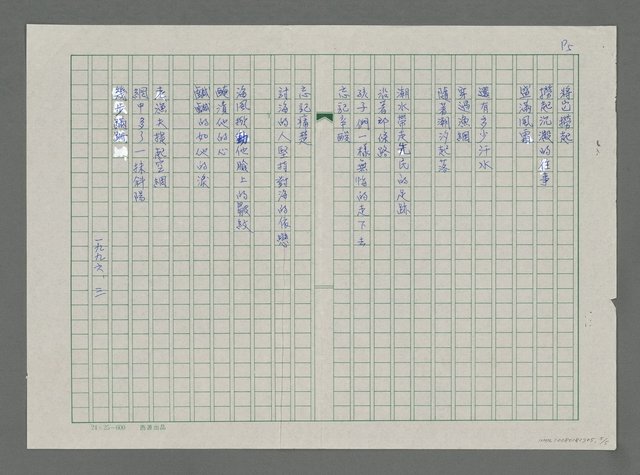 P5
將它撈起
撈起沉澱的往事
盛滿風霜
還有多少汗水
穿過漁網
隨著潮汐起落
潮水帶走先民的足跡
沿著那條路
孩子們一樣無悔的走下去
忘記辛酸
忘記痛楚
討海的人堅持對海的依戀
海風掀動他臉上的皺紋
醃漬他的心
鹹鹹的如他的淚
老漁夫撐起空網
網中多了一抹斜陽
幾许蹣跚
一九九六.三
24×25=600